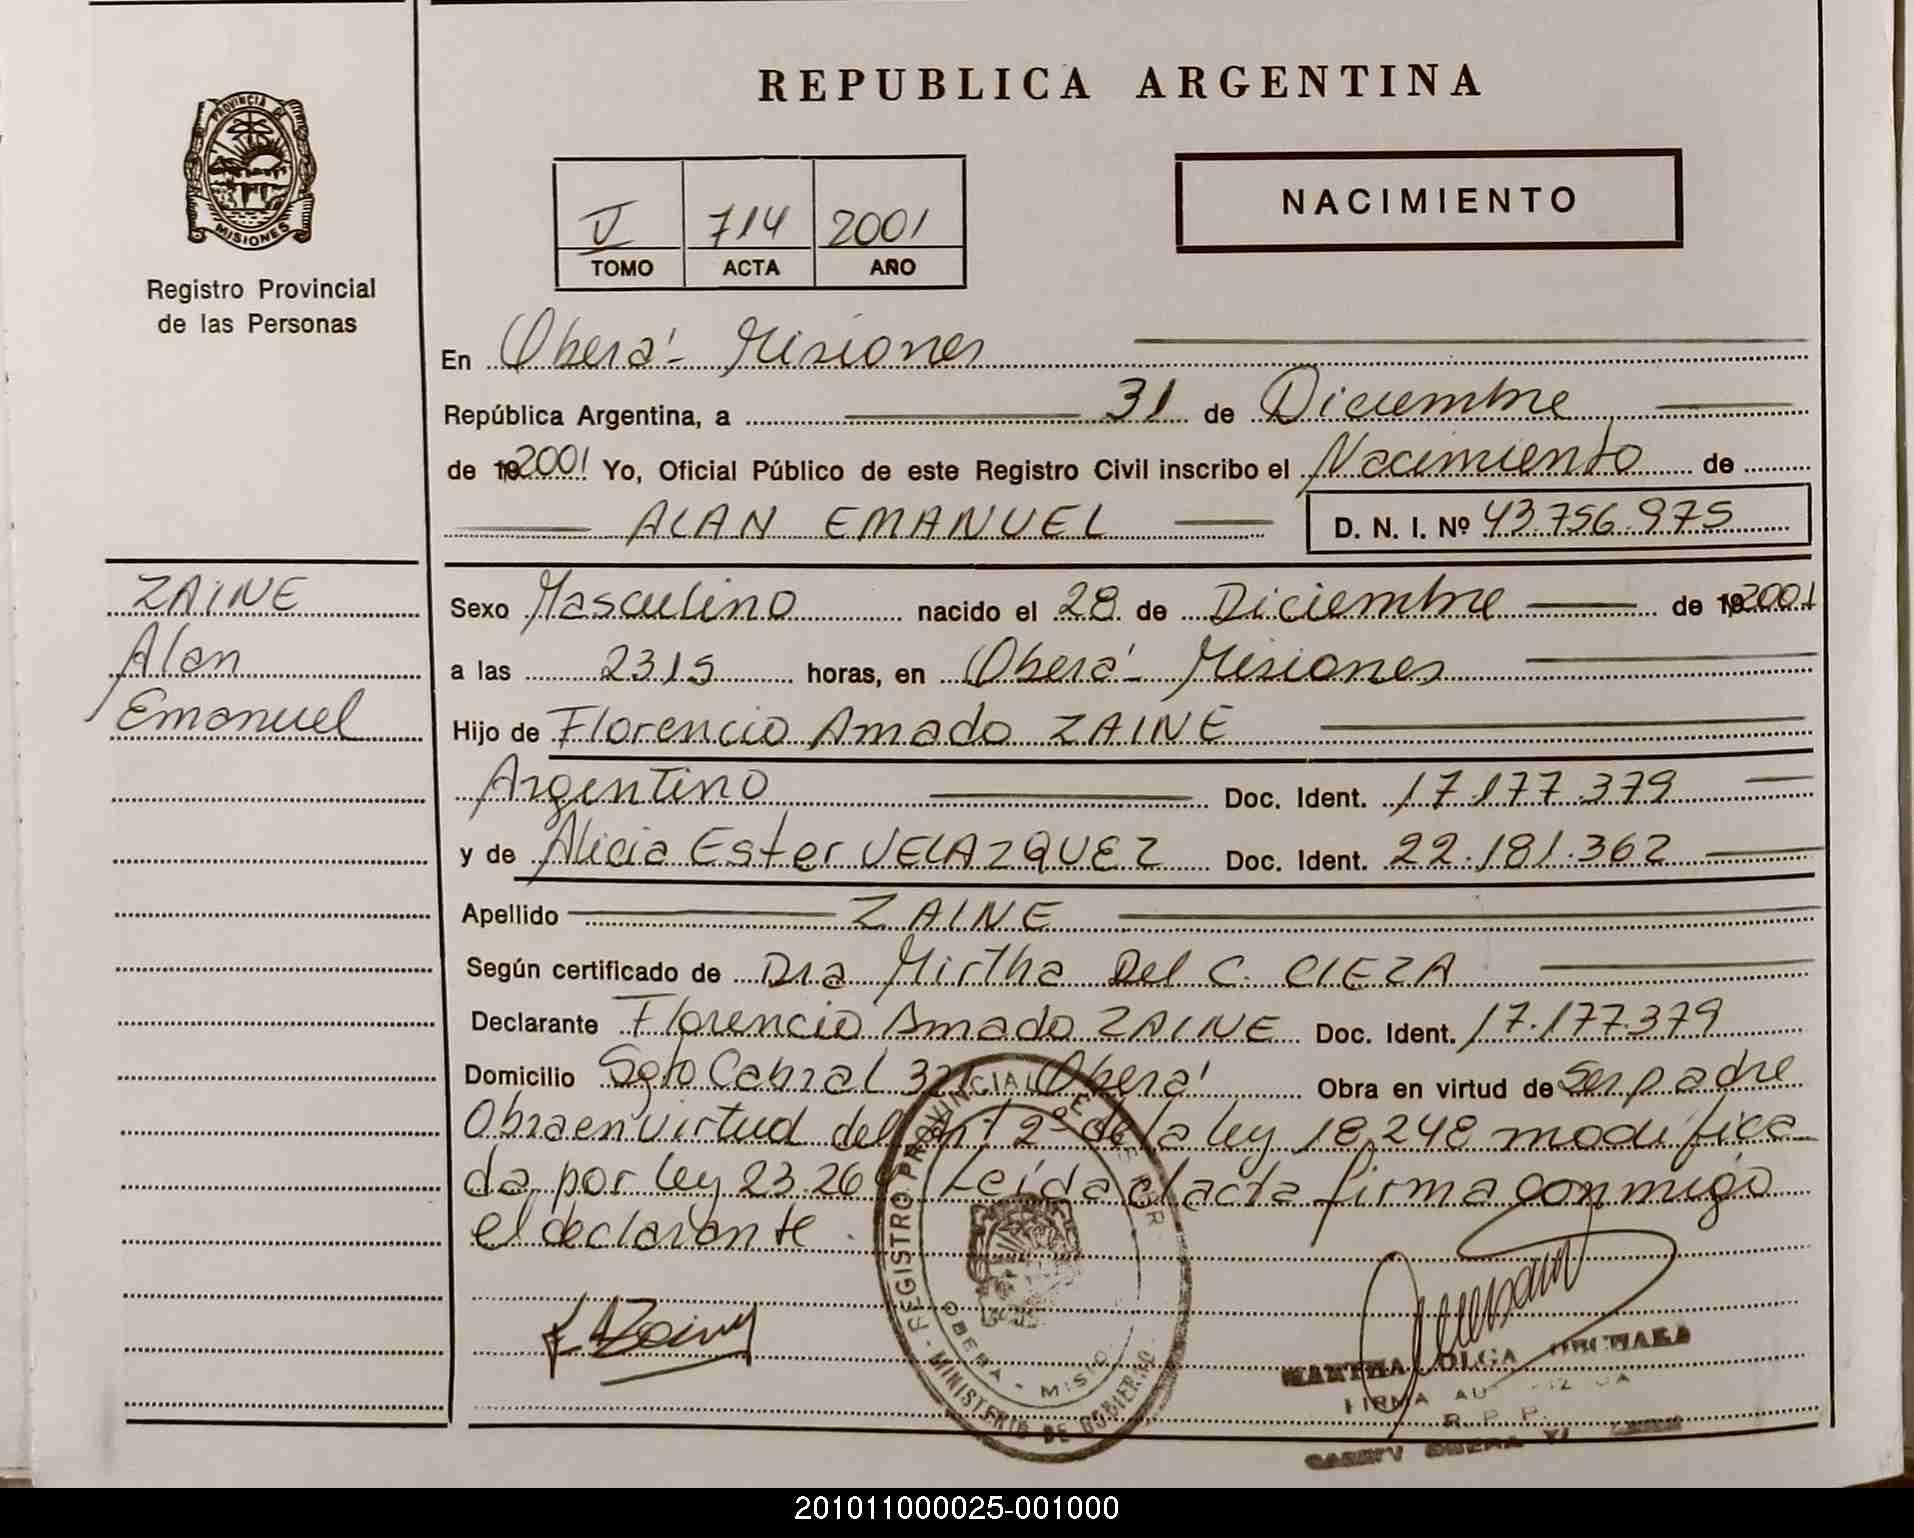 REPUBLICA ARGENTINA
PROVINCIA DE
MISIONES
Registro Provincial
de las Personas
NACIMIENTO
V 714 2001
TOMO ACTA AÑO
En Oberá - Misiones
República Argentina, a 31 de Diciembre
de 192001 Yo, Oficial Público de este Registro Civil inscribo el Nacimiento de
ALAN EMANUEL D. N. I. Nº 43.756.975
ZAINE
Alan
Emanuel
Sexo Masculino nacido el 28 de Diciembre de 192001
a las 2315 horas, en Oberá - Misiones
Hijo de Florencio Amado ZAINE
Argentino Doc. Ident. 17.177.379
y de Alicia Ester VELAZQUEZ Doc. Ident. 22.181.362
Apellido ZAINE
Según certificado de Dra Mirtha Del C. CIEZA
Declarante Florencio Amado ZAINE Doc. Ident. 17.177.379
Domicilio Sgto Cabral Oberá Obra en virtud de Ser padre
Obra en virtud del art 2º de la ley 18.248 modifica
da por ley 23.264 Leída el acta firma conmigo
el declarante.
REGISTRO PROVINCIAL DE LAS PER
OBERA - MISIO
MINISTERIO DE GOBIERNO
MARTHA OLGA
FIRMA
R. P. P.
OBERA
201011000025-001000